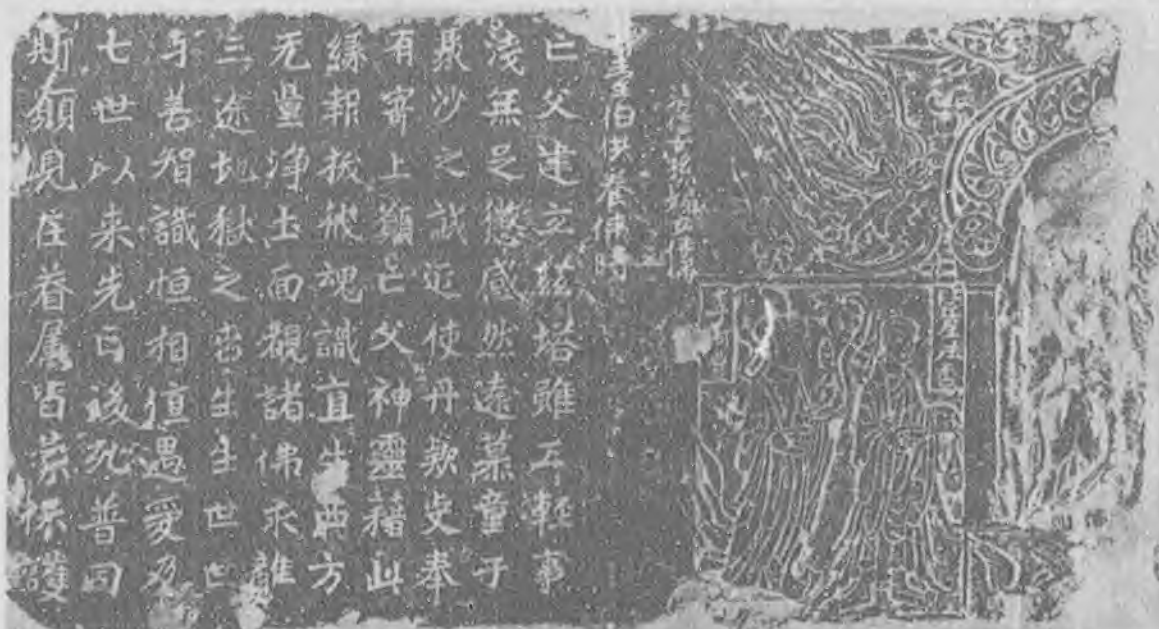 伯供養佛時
亡父建立玆塔雖工輕事
淺無足懲感然遠慕童子
聚沙之誠近使丹款史奉
有寄上願亡父神靈藉此
緣報拔飛魂識直生西方
无量淨土面覩諸佛永離
三途地獄之苦生生世世
与善智識恒相值遇爰及
七世以来先亡後死普同
斯願見在眷属皆蒙保護